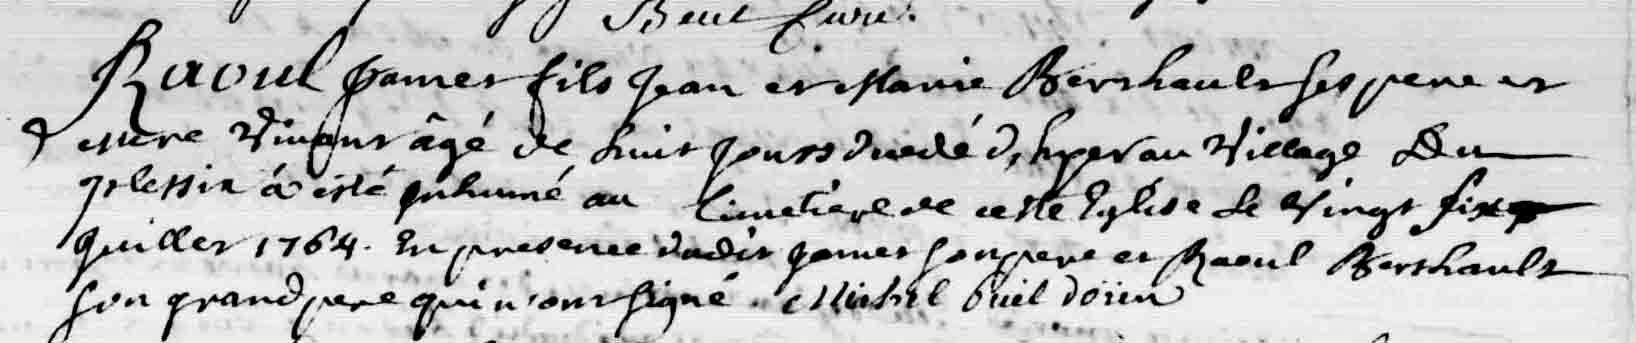 Beut Curé.
Raoul Jamet fils Jean et Marie Bershault ses pere et
mere vivant âgé de huit jours décédé d'hyer au Village Du
plessix a esté inhumé au Cimetiere de cette Eglise le vingt six
juillet 1764. En presence dudit Jamet son pere et Raoul Bershault
son grand pere qui n'ont signé. Michel doïen